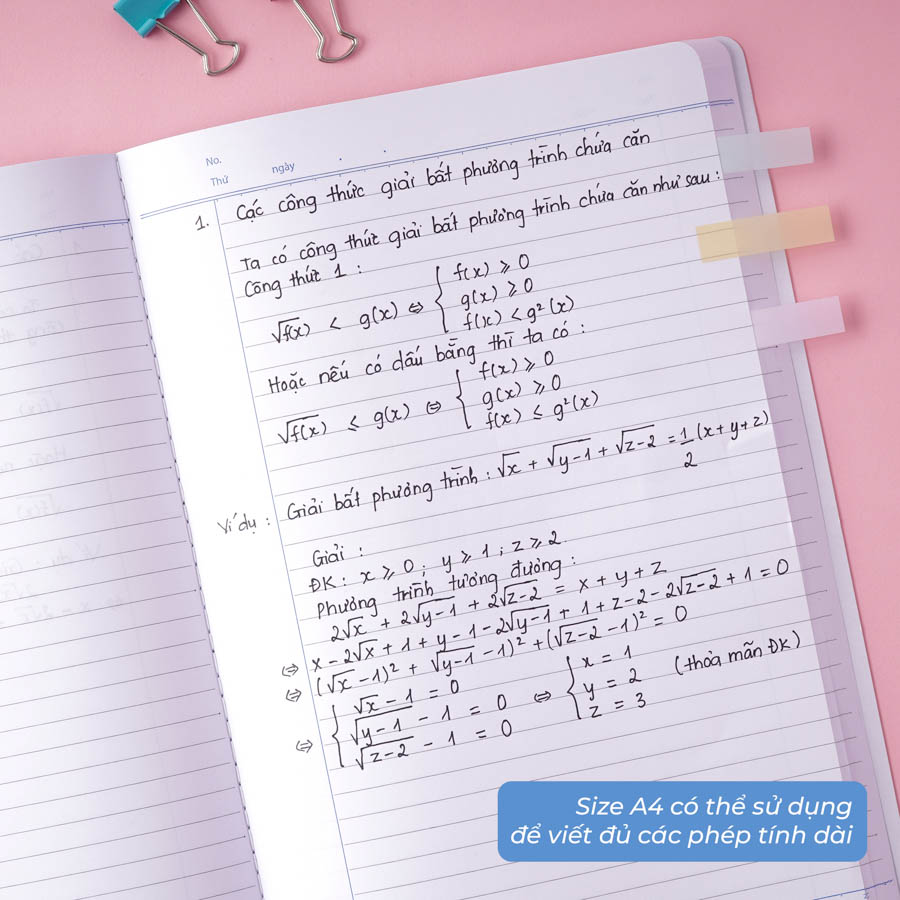 No.
Thứ ngày
1. Các công thức giải bất phương trình chứa căn
Ta có công thức giải bất phương trình chứa căn như sau:
Công thức 1:
√f(x) < g(x) ⇔ { f(x) ≥ 0
g(x) ≥ 0
f(x) < g²(x)
Hoặc nếu có dấu bằng thì ta có:
√f(x) ≤ g(x) ⇔ { f(x) ≥ 0
g(x) ≥ 0
f(x) ≤ g²(x)
Ví dụ: Giải bất phương trình: √x + √y-1 + √z-2 = 1/2 (x+y+z)
Giải:
ĐK: x ≥ 0; y ≥ 1; z ≥ 2
Phương trình tương đương:
2√x + 2√y-1 + 2√z-2 = x + y + z
⇔ x - 2√x + 1 + y - 1 - 2√y-1 + 1 + z - 2 - 2√z-2 + 1 = 0
⇔ (√x - 1)² + √y-1 - 1)² + (√z-2 - 1)² = 0
⇔ { √x - 1 = 0
√y-1 - 1 = 0
√z-2 - 1 = 0
⇔ { x = 1
y = 2 (thỏa mãn ĐK)
z = 3
Size A4 có thể sử dụng
để viết đủ các phép tính dài